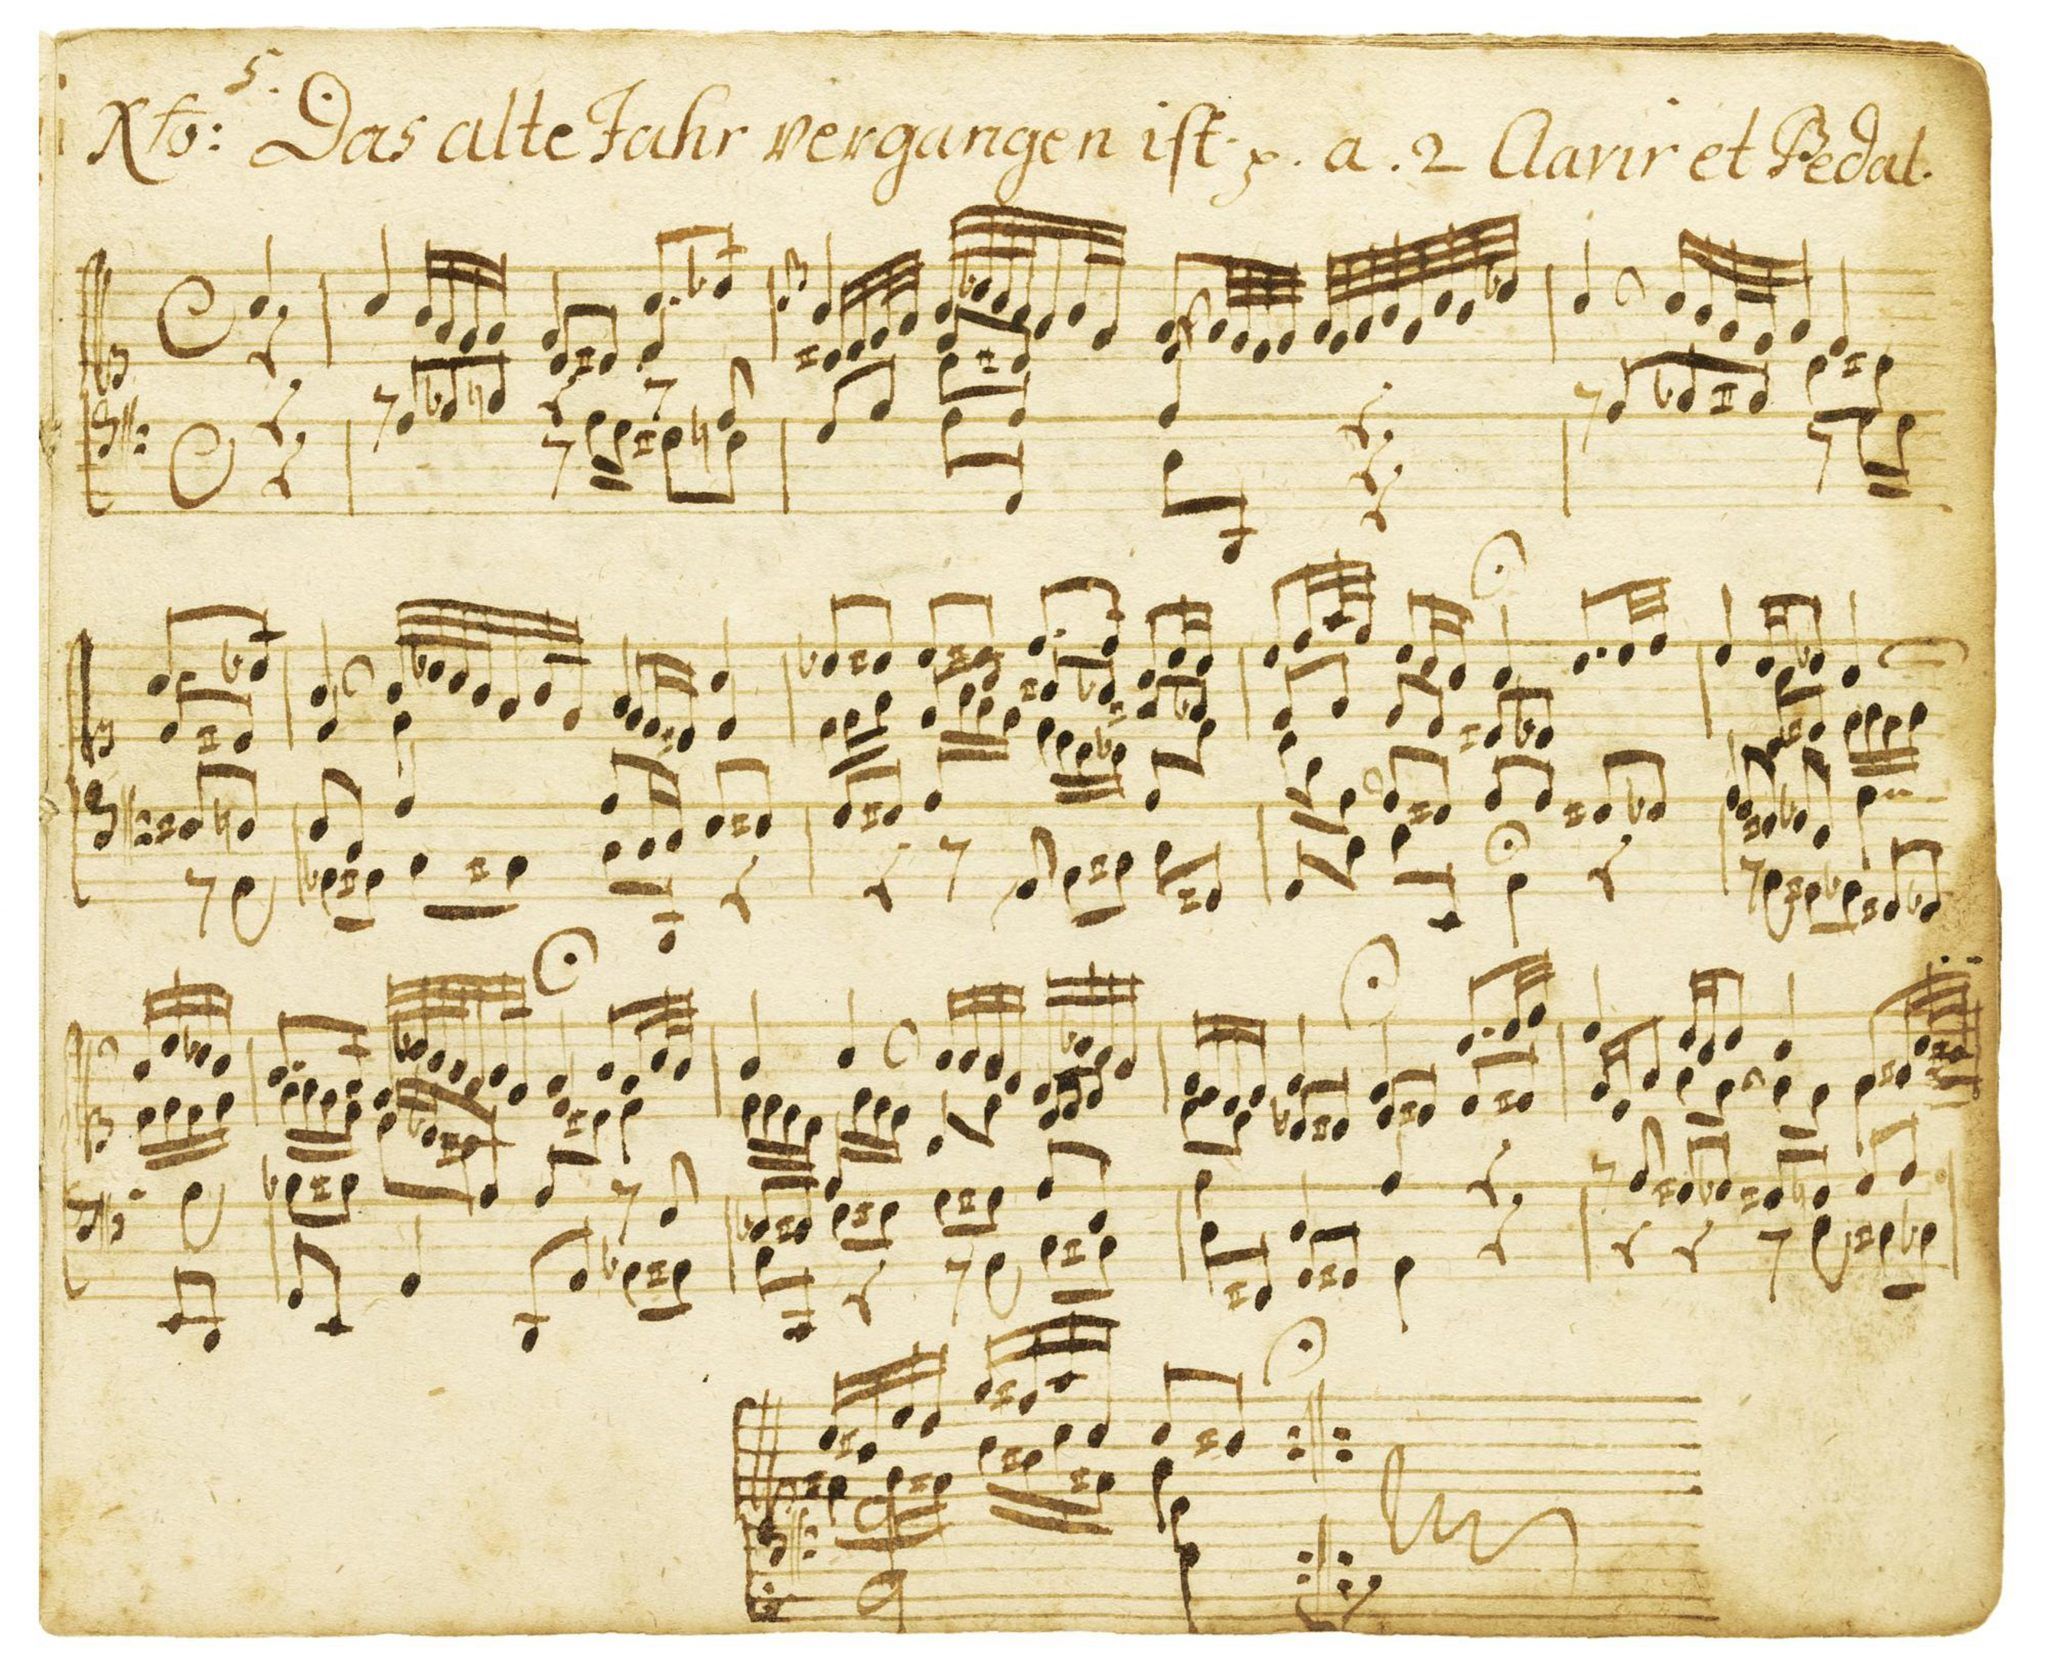 5.
Xto: Das alte Jahr vergangen ist. p. a. 2 Clavir et Pedal.